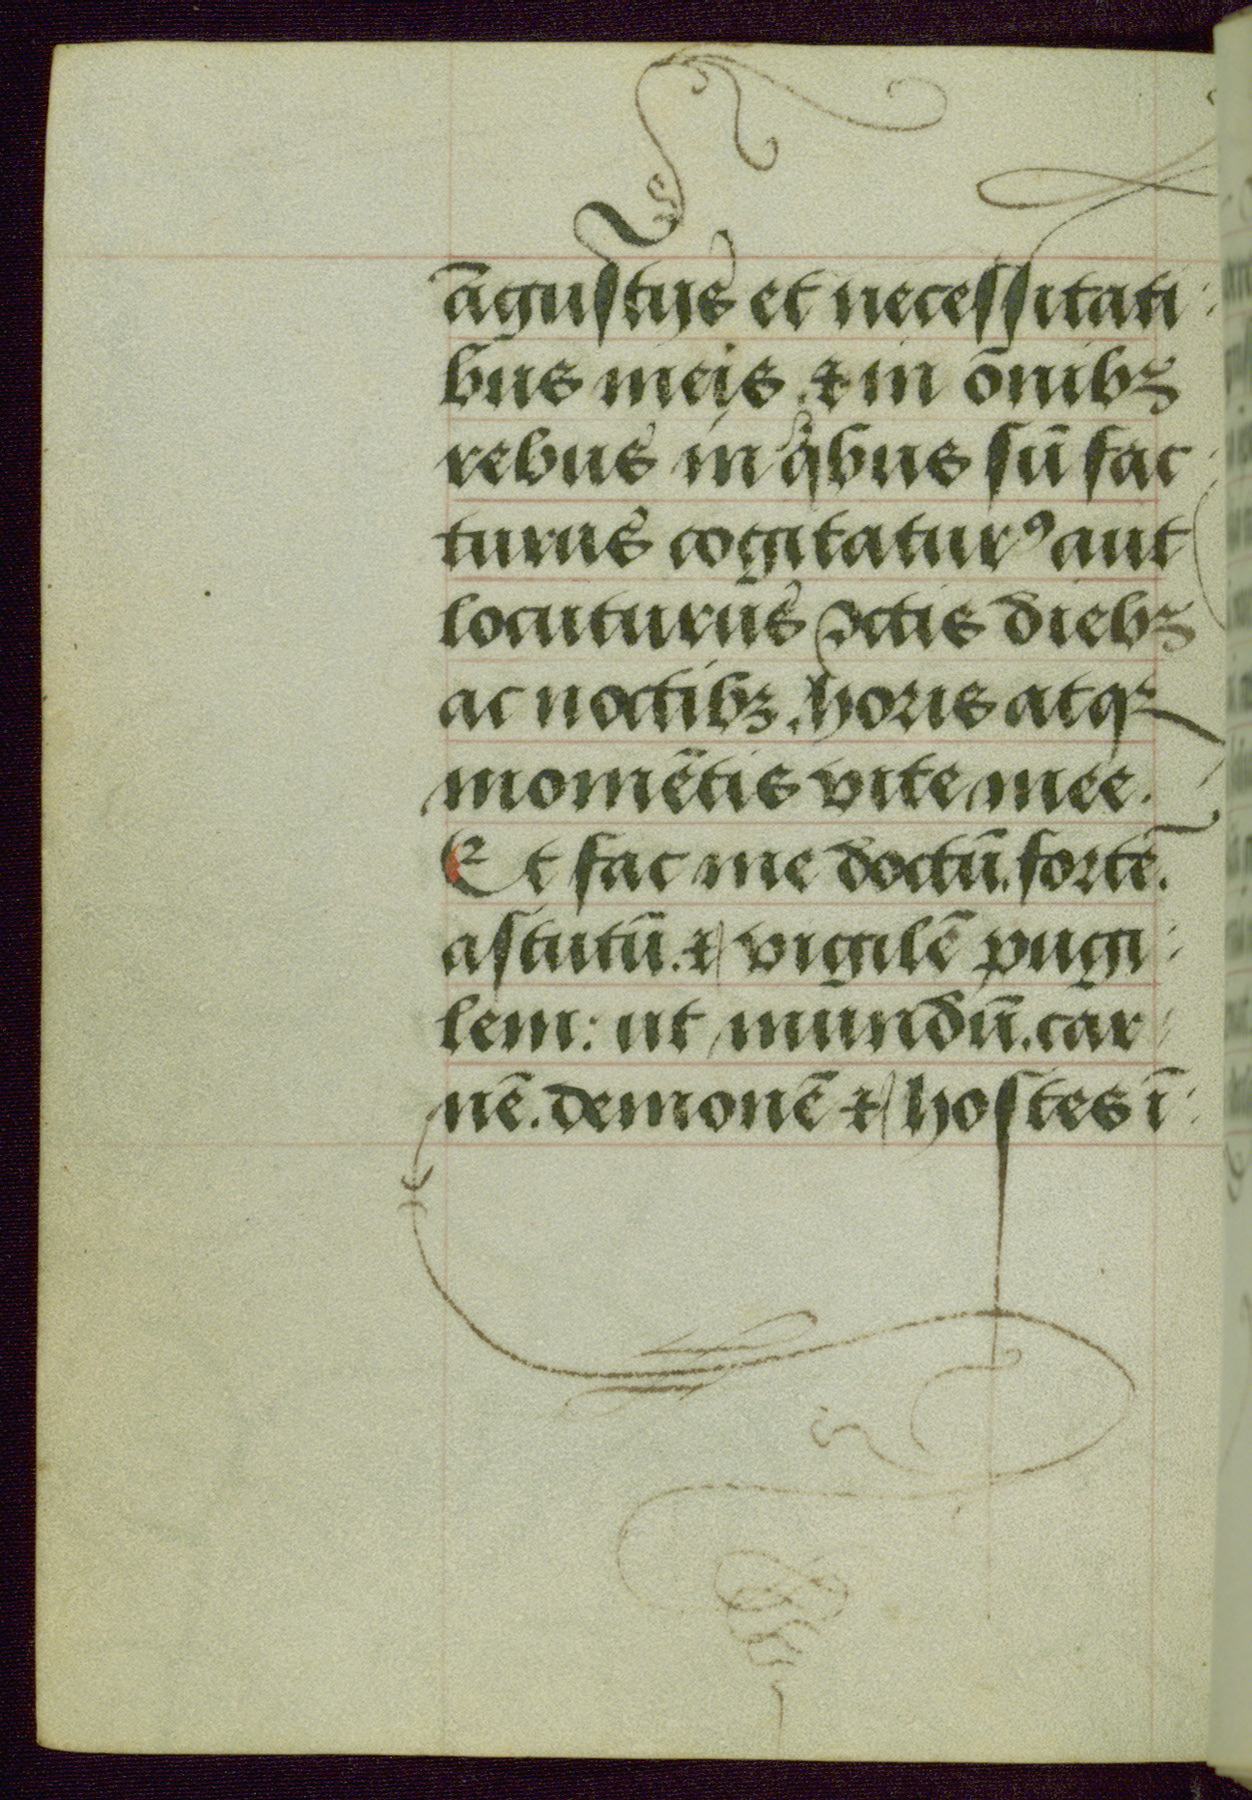 āgustijs et necessitati-
bus meis ⁊ in o̅nibꝫ
rebus in qͥbus sū fac-
turus cogitaturꝰ aut
locuturus ꝯctis diebꝫ
ac noctibꝫ. horis atqꝫ
momētis vite mee.
Et fac me doctū. fortē.
astutū. ⁊ vigilē pugi-
lem: ut mundū. car-
nē. demonē ⁊ hostes ī-